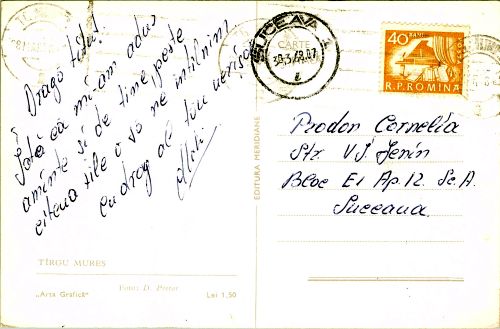 Dragă tutu!
Iată că mi-am adus
aminte și de tine peste
cîteva zile o să ne întîlnim
cu drag al tău verișor
TÎRGU MUREȘ
Foto: D. Petter
„Arta Grafică"
Lei 1,50
EDITURA MERIDIANE
SUCEAVA
CARTE
40 BANI
POSTA
R.P.ROMINA
Prodan Cornelia
Str. VI Lenin
Bloc E1 Ap.12. Sc.A.
Suceava.